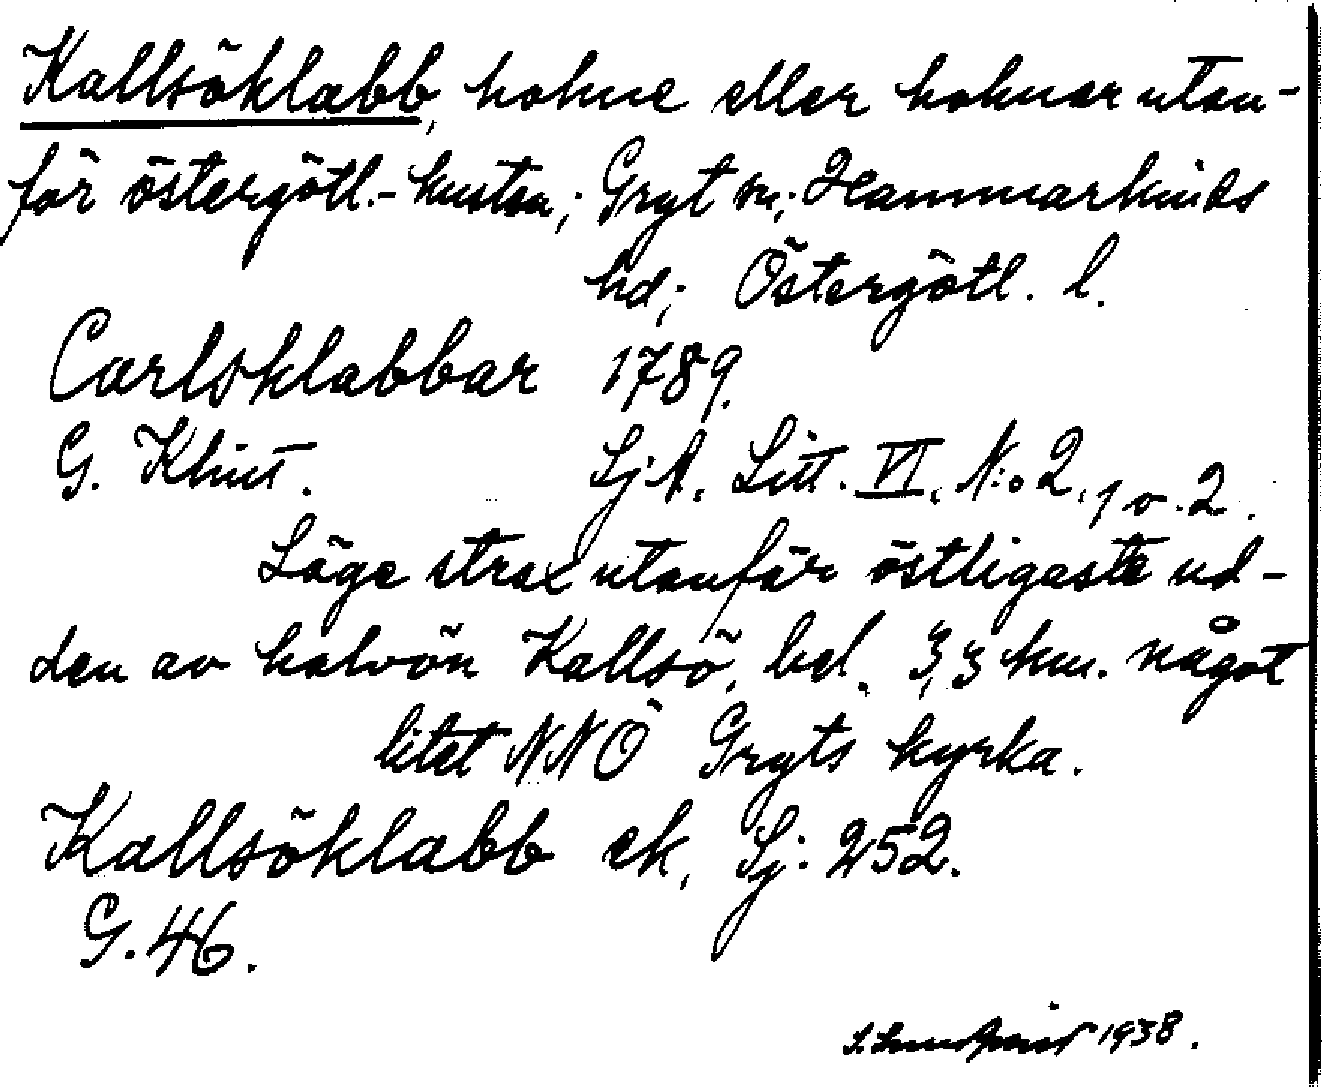 Kallsöklabb, holme eller holmar utan-
för östergötl.- kusten; Gryt sn; Hammarkinds
hd; Östergötl. l.
Carlsklabbar 1789.
G. Klint. SjA. Litt. VI, N:o 2, 1 o. 2.
Läge strax utanför östligaste ud-
den av halvön Kallsö, bel. 3,3 km. något
litet NNÖ Gryts kyrka.
Kallsöklabb ek, Sj. 252.
G. 46.
1938.